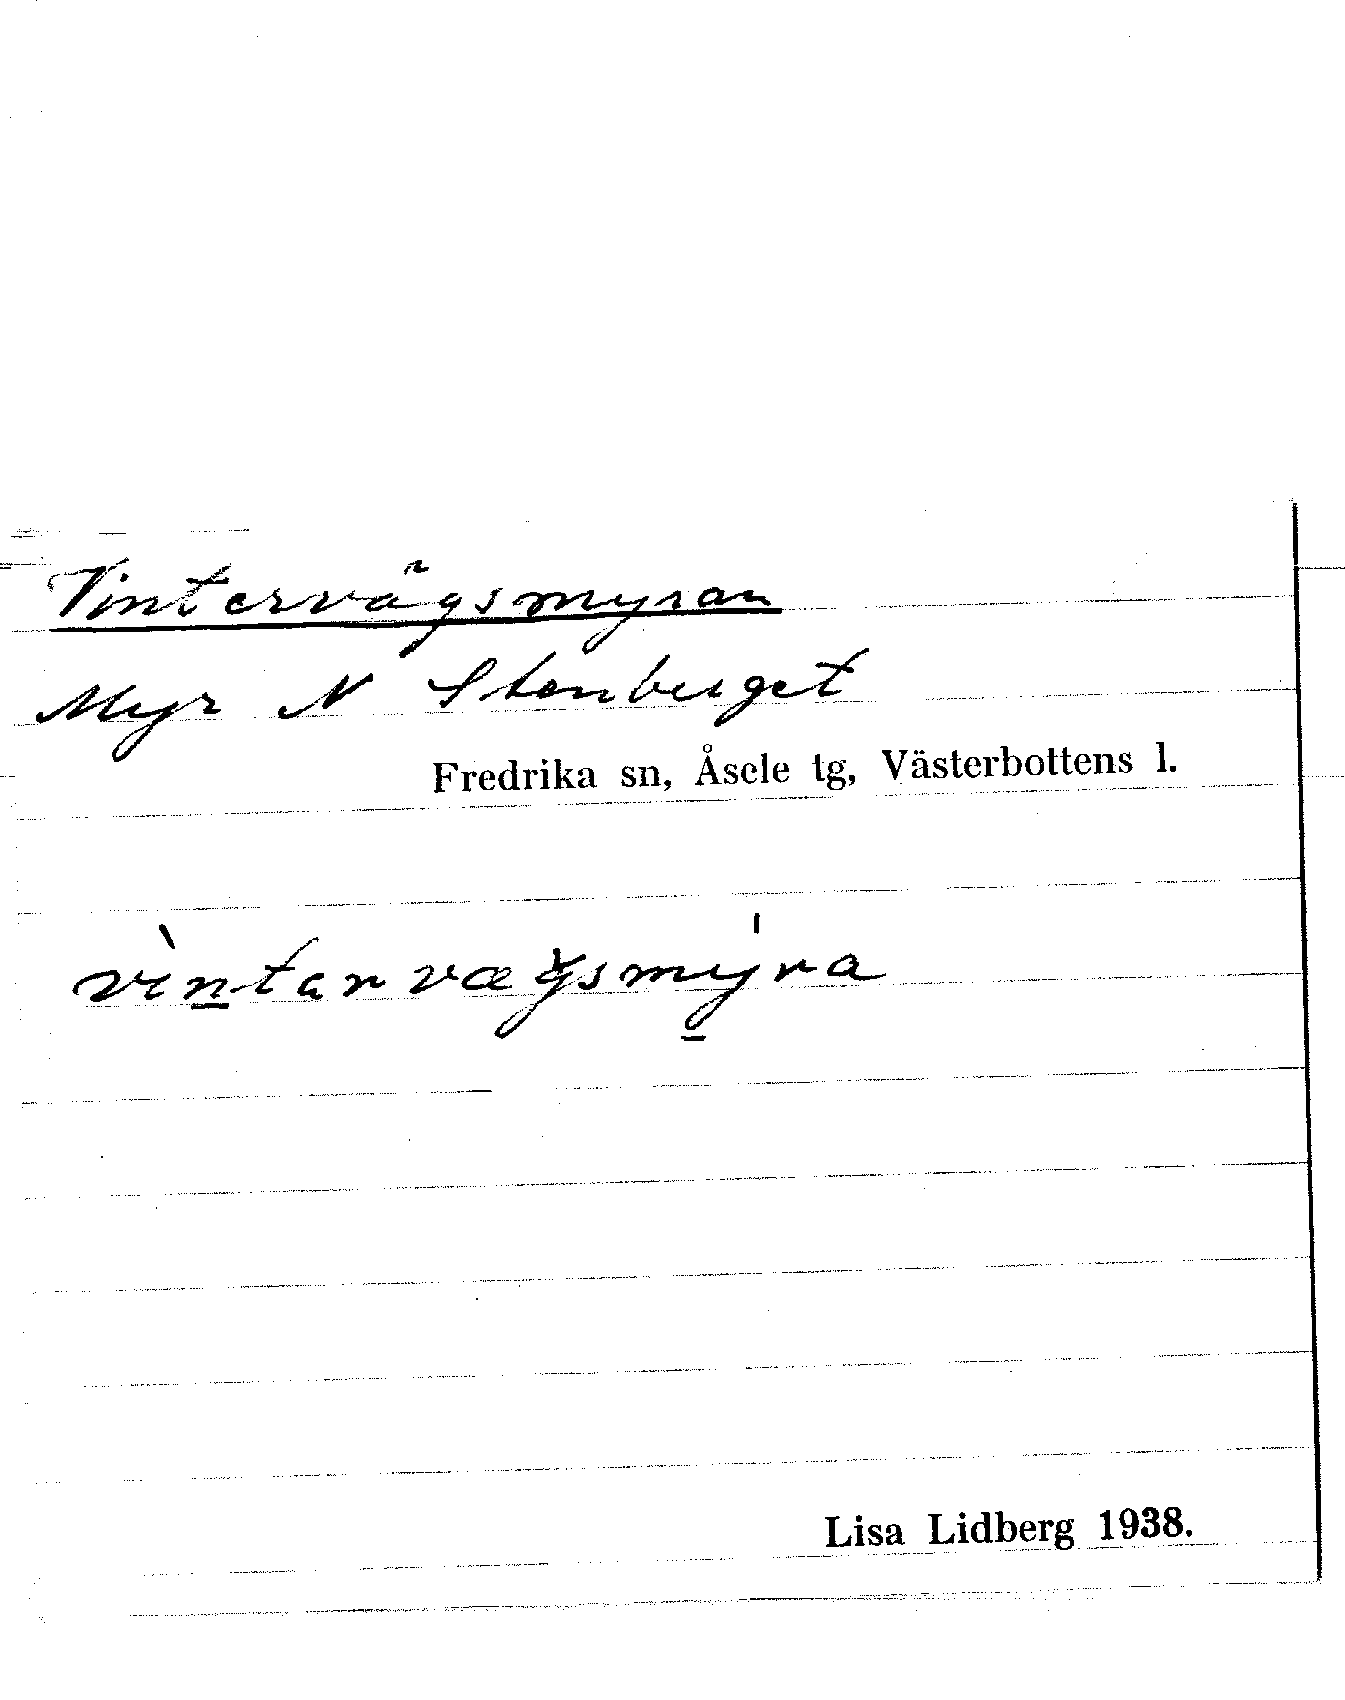 Vintervägsmyran
Myr N Stenberget
Fredrika sn, Åsele tg, Västerbottens l.
vìntarvægsmýra
Lisa Lidberg 1938.